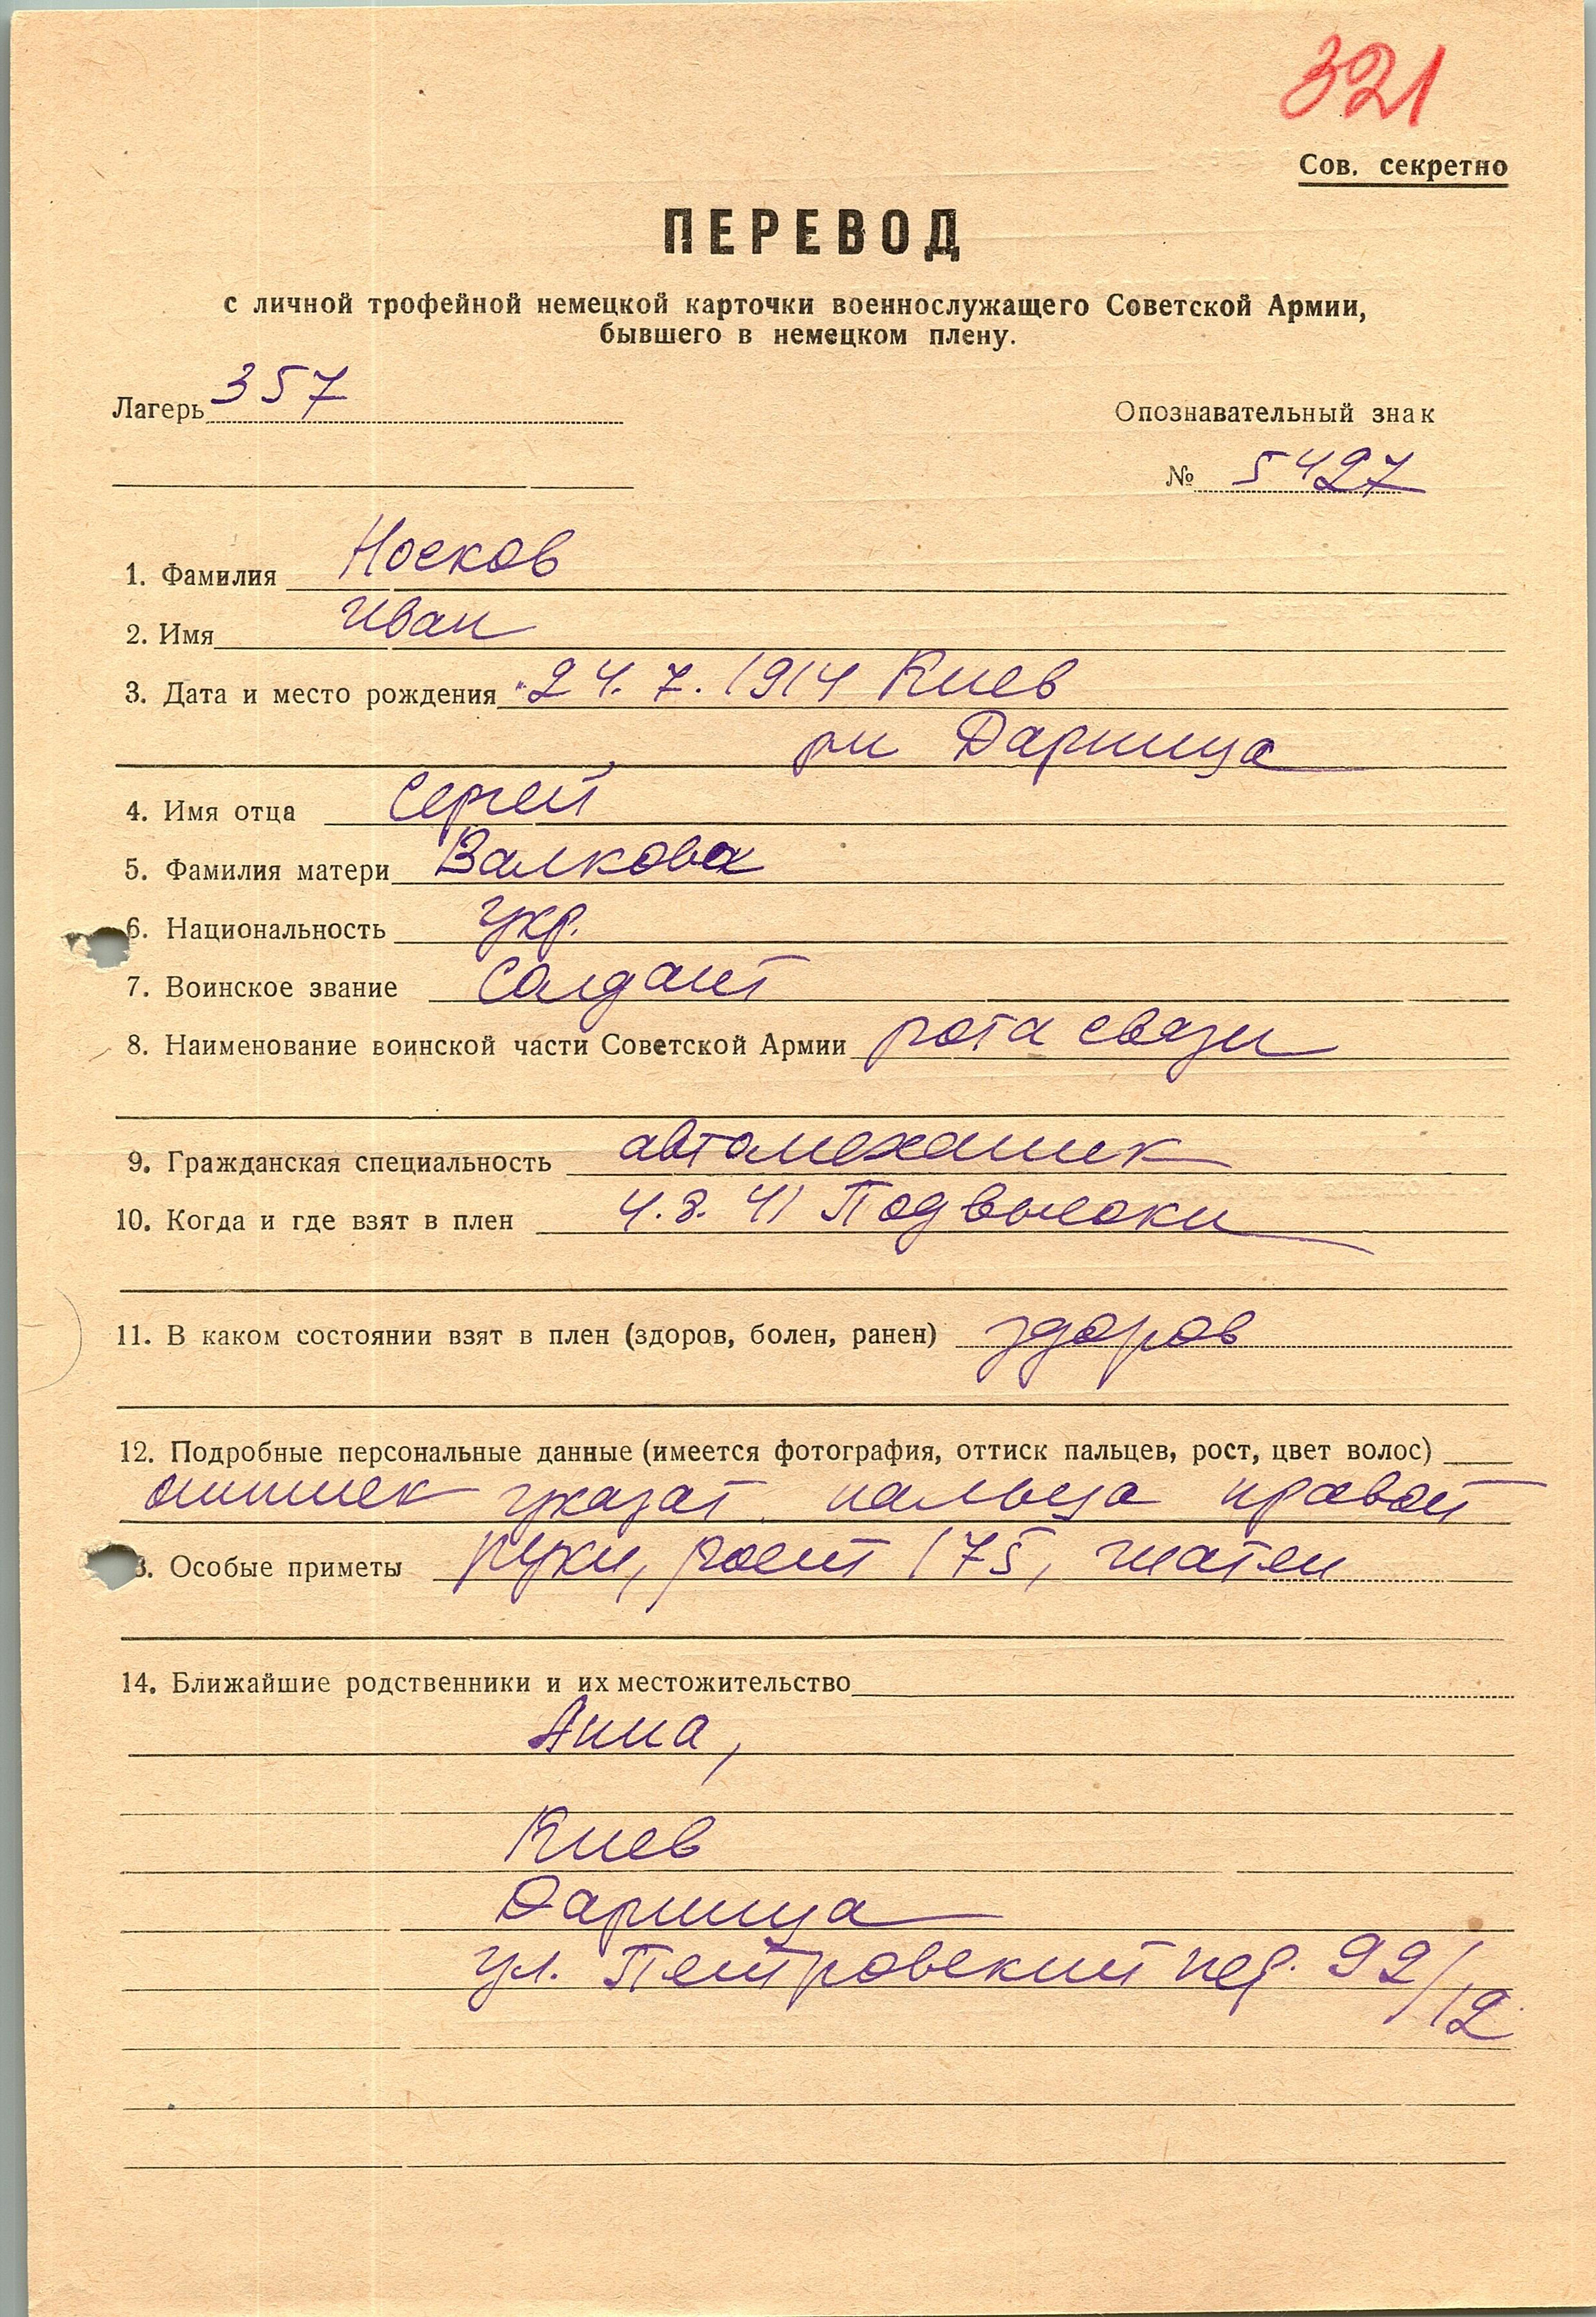 321
Сов. секретно
ПЕРЕВОД
с личной трофейной немецкой карточки военнослужащего Советской Армии,
бывшего в немецком плену.
Лагерь 357
Опознавательный знак
№ 5427
1. Фамилия Носков
2. Имя Иван
3. Дата и место рождения 24. 7. 1914 Киев
рн Дарница
4. Имя отца Сергей
5. Фамилия матери Валкова
6. Национальность укр.
7. Воинское звание Солдат
8. Наименование воинской части Советской Армии рота связи
9. Гражданская специальность автомеханик
10. Когда и где взят в плен 4.8.41 Подвысоки
11. В каком состоянии взят в плен (здоров, болен, ранен) здоров
12. Подробные персональные данные (имеется фотография, оттиск пальцев, рост, цвет волос)
оттиск указат. пальца правой
3. Особые приметы руки, рост 175, шатен
14. Ближайшие родственники и их местожительство
Анна,
Киев
Дарница
ул. Петровский пер. 92/12